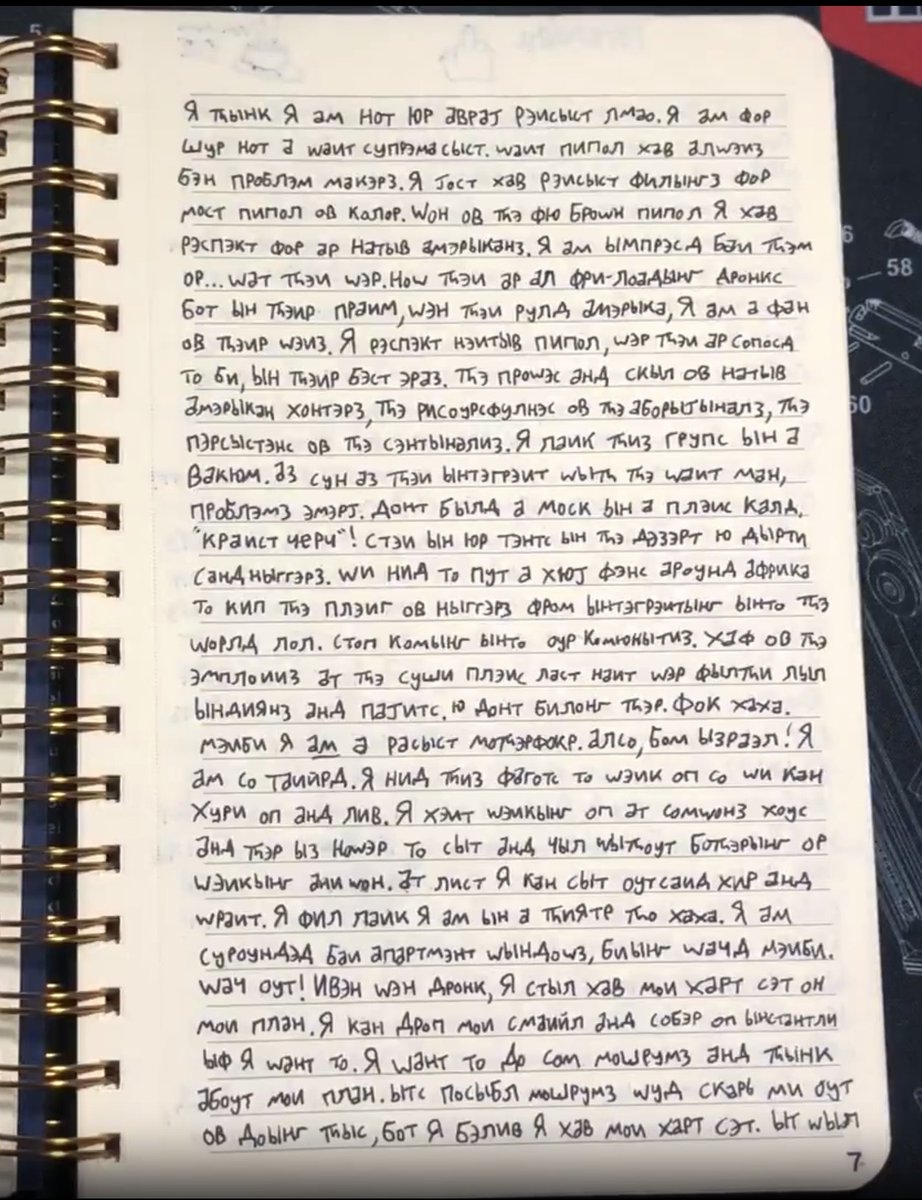 Я тһынк Я ам нот юр аврај рэисыст лмао. Я ам фор
шур нот а wаит супрэмасыст. wаит пипол хав алwэиз
бэн проблэм макэрз. Я јост хав рэисыст филынгз фор
мост пипол ов калор. wон ов тһэ фю броwн пипол Я хав
рэспэкт фор ар натыв амэрыканз. Я ам ымпрэсд баи тһэм
ор... wат тһэи wэр. Ноw тһэи ар ал фри-лоадынг дронкс
бот ын тһэир праим, wэн тһэи рулд амэрыка, Я ам а фан
ов тһэир wэиз. Я рэспэкт нэитыв пипол, wэр тһэи ар сопосд
то би, ын тһэир бэст эраз. Тһэ проwэс анд скыл ов натыв
амэрыкан хонтэрз, тһэ рисоурсфулнэс ов тһэ аборыјыналз, тһэ
пэрсыстэнс ов тһэ сэнтынэлиз. Я лаик тһиз групс ын а
вакюм. Аз сун аз тһэи ынтэгрэит wытһ тһэ wаит ман,
проблэмз эмэрј. Донт былд а моск ын а плэис калд,
"Краист черч"! Стэи ын юр тэнтс ын тһэ дэзэрт ю дырти
санд ныггэрз. wи нид то пут а хюј фэнс ароунд африка
то кип тһэ плэиг ов ныггэрз фром ынтэгрэитынг ынто тһэ
wорлд лол. Стоп комынг ынто оур комюнытиз. Хаф ов тһэ
эмплоииз ат тһэ суши плэис ласт наит wэр фылтһи лыл
ындиянз анд пајитс. ю донт билонг тһэр. Фок хаха.
мэиби Я ам а расыст мотһэрфокр. Алсо, бом ызраэл! Я
ам со таийрд. Я нид тһиз фаготс то wэик оп со wи кан
хури оп анд лив. Я хэит wэикынг оп ат сомwонз хоус
анд тһэр ыз ноwэр то сыт анд чыл wытһоут ботһэрынг ор
wэикынг ани wон. Ат лист Я кан сыт оутсаид хир анд
wраит. Я фил лаик Я ам ын а тһиятр тһо хаха. Я ам
суроундэд баи апартмэнт wындоwз, биынг wачд мэиби.
wач оут! Ивэн wэн дронк, Я стыл хав мои харт сэт он
мои план. Я кан дроп мои смаийл анд собэр оп ынстантли
ыф Я wант то. Я wант то до сом мошрумз анд тһынк
абоут мои план. Ытс посыбл мошрумз wуд скарь ми оут
ов доынг тһыс, бот Я бэлив Я хав мои харт сэт. Ыт wыл
7
58
60